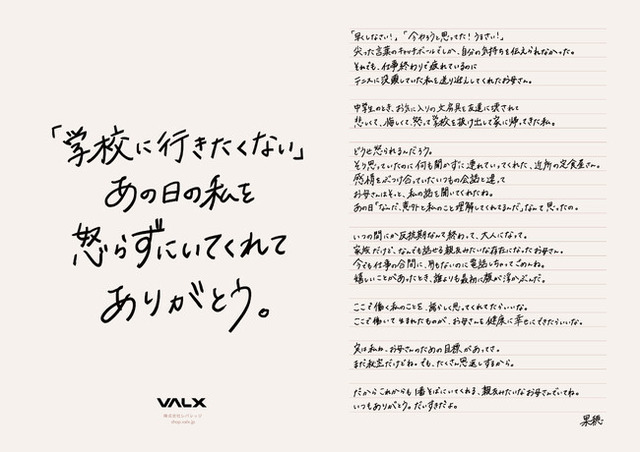 「学校に行きたくない」
あの日の私を
怒らずにいてくれて
ありがとう。
VALX
株式会社レバレッジ
shop.valx.jp
「早くしなさい！」「今やろうと思ってた！うるさい！」
尖った言葉のキャッチボールでしか、自分の気持ちを伝えられなかった。
それでも、仕事終わりで疲れているのに
テニスに没頭していた私を送り迎えしてくれたお母さん。
中学生のとき、お気に入りの文房具を友達に壊されて
悲しくて、悔しくて、怒って学校を抜け出して家に帰ってきた私。
どうせ怒られるんだろう。
そう思っていたのに何も聞かずに連れていってくれた、近所の定食屋さん。
感情をぶつけ合っていたいつもの会話と違って
お母さんはそっと、私の話を聞いてくれたね。
あの日「なんだ、意外と私のこと理解してくれてるんだ」なんて思ったの。
いつの間にか反抗期なんて終わって、大人になって。
家族だけど、なんでも話せる親友みたいな存在になったお母さん。
今でも仕事の合間に、用もないのに電話しちゃってごめんね。
嬉しいことがあったとき、誰よりも最初に顔が浮かぶんだ。
ここで働く私のことを、誇らしく思ってくれてたらいいな。
ここで働いて生まれたものが、お母さんを健康に幸せにできたらいいな。
実は私ね、お母さんのための目標があってさ。
まだ秘密だけどね。でも、たくさん恩返しするから。
だからこれからも1番そばにいてくれる、親友みたいなお母さんでいてね。
いつもありがとう。だいすきだよ。
果穂